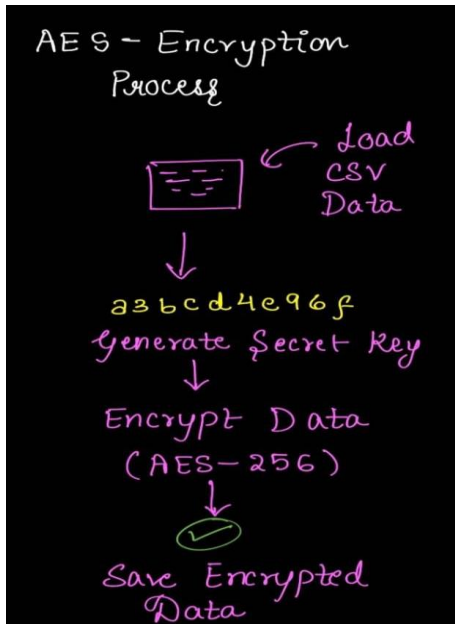 AES - Encryption
Process
Load
CSV
Data
a3bcd4e96f
Generate Secret Key
Encrypt Data
(AES-256)
Save Encrypted
Data